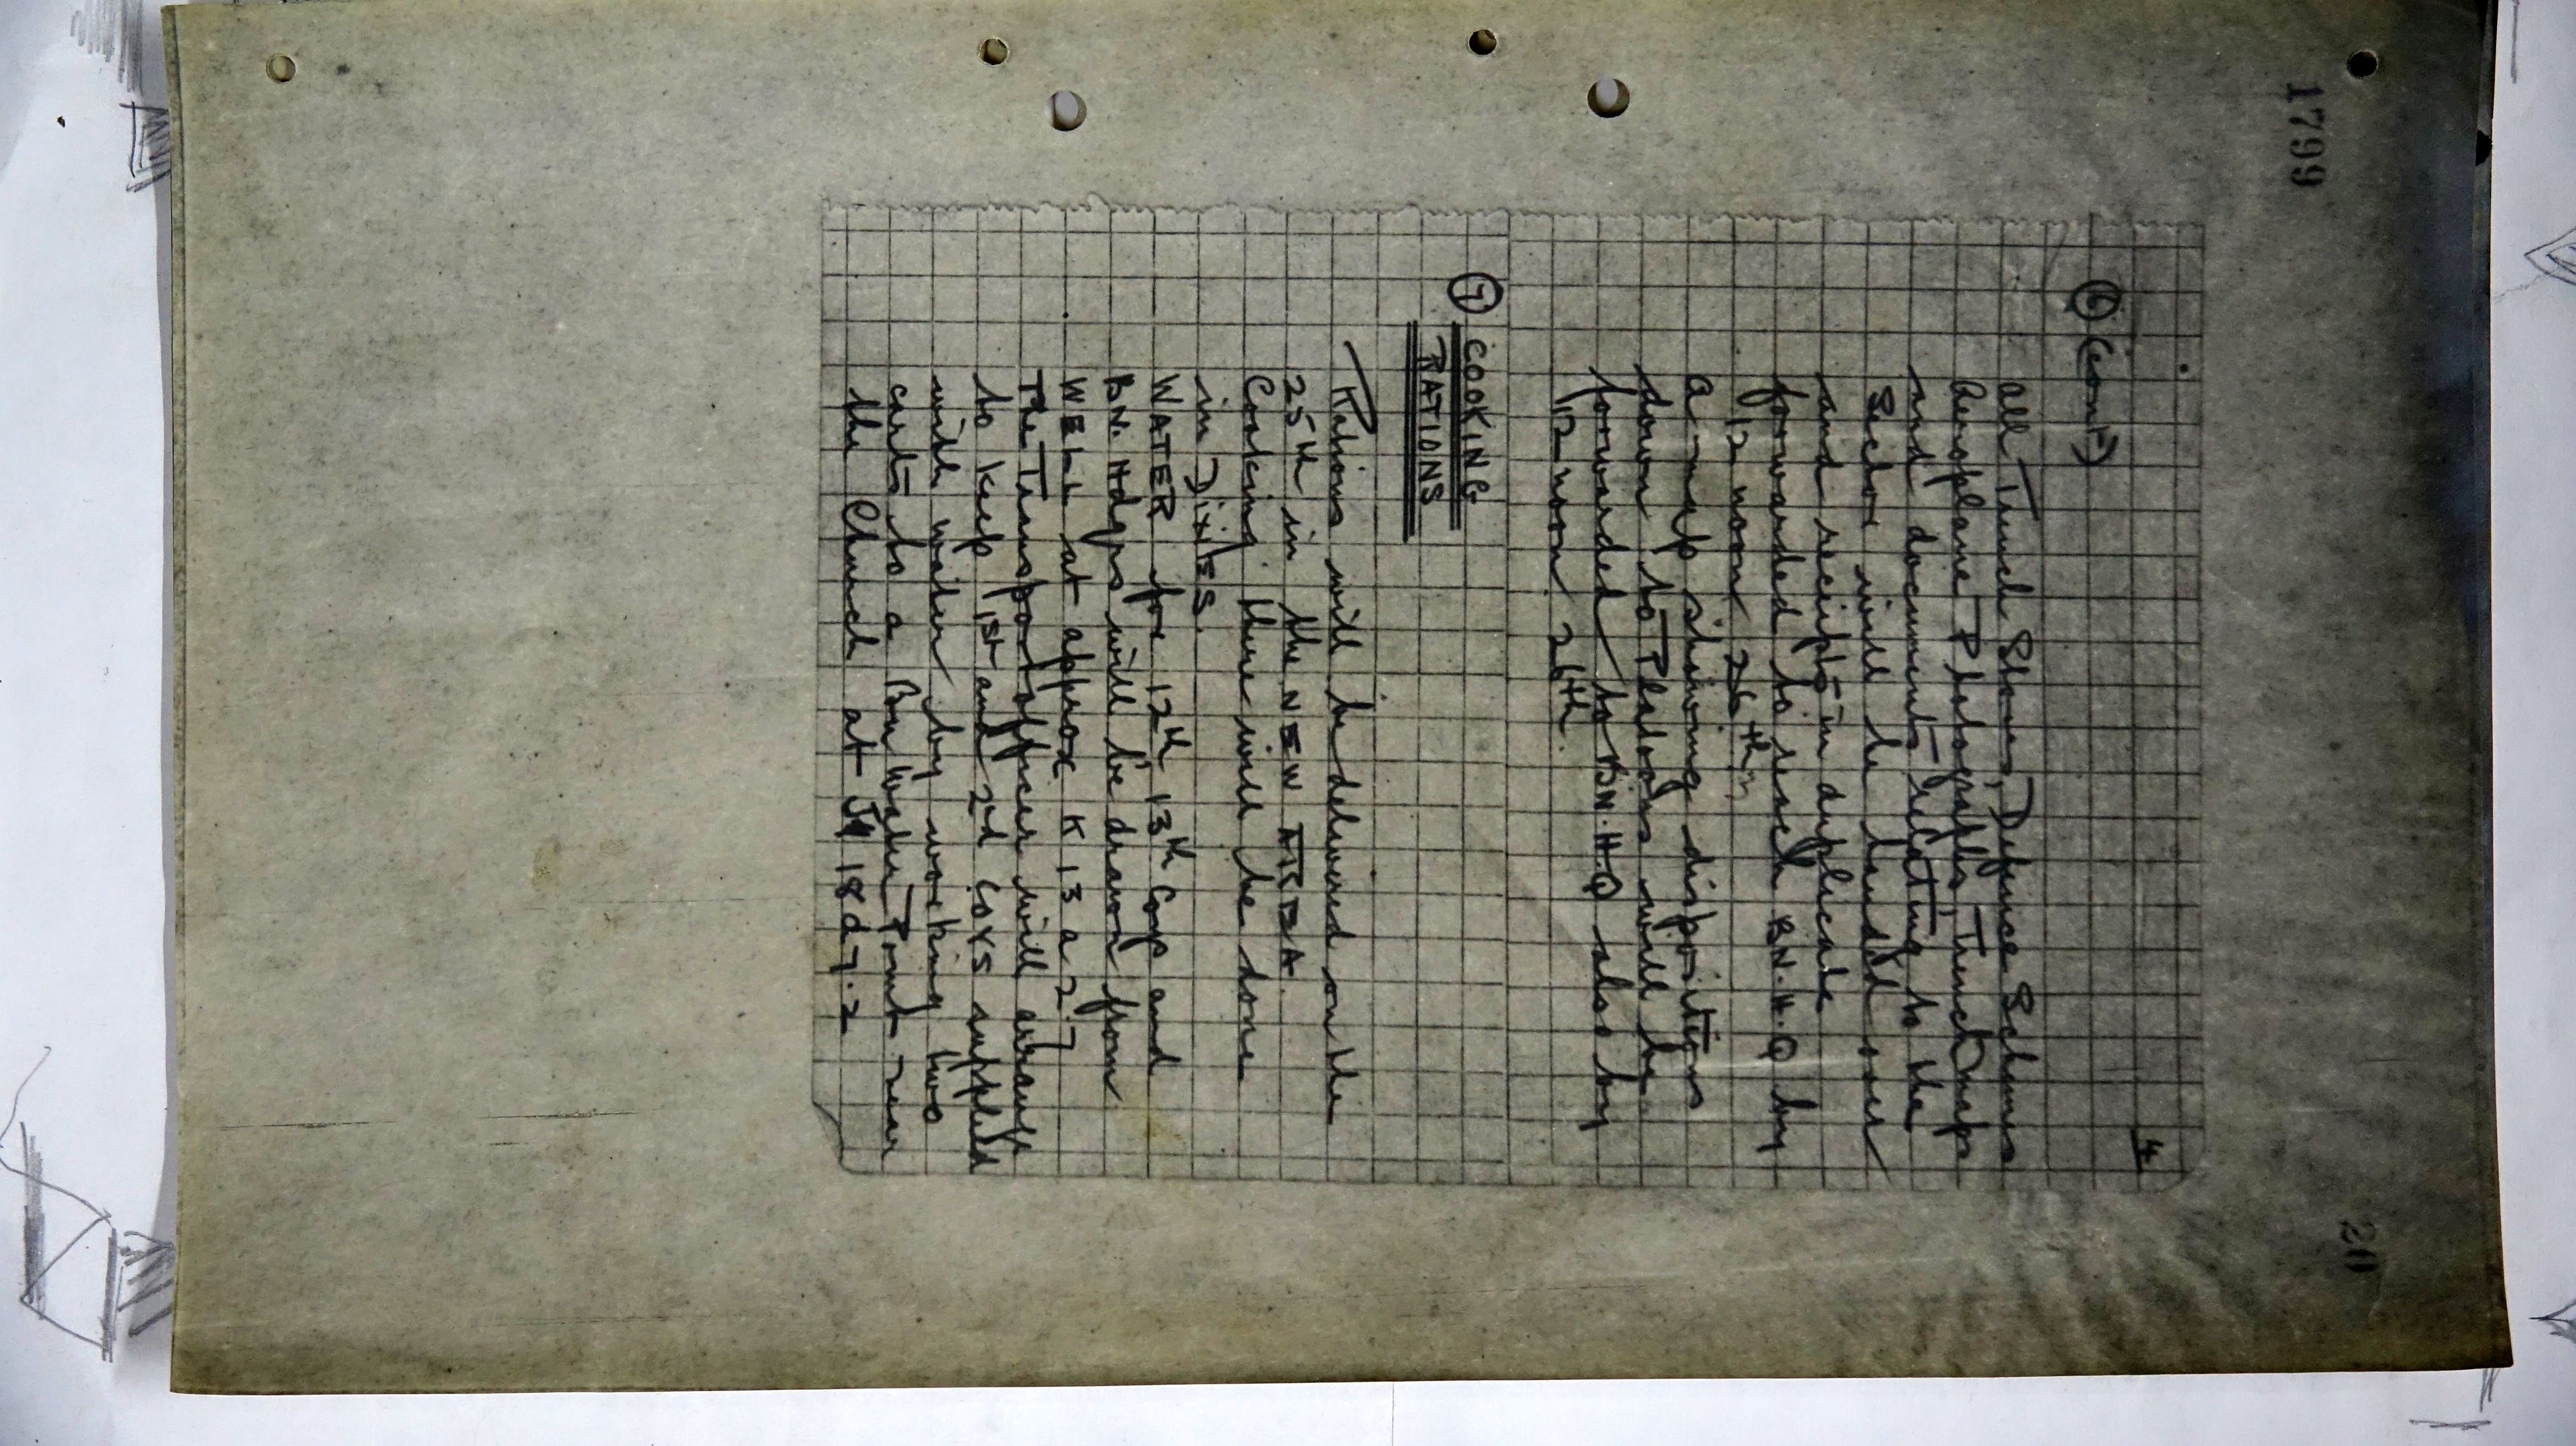 1799
20
4
⑥ (Cont)
All Trench Stores, Defence Schemes
Aeroplane Photographs, Trench maps
and documents relating to the
Sector will be handed over
and receipts in duplicate
forwarded to reach BN. H.Q by
12 noon 26th.
A map showing dispositions
down to Platoons will be
forwarded to BN. H.Q also by
12 noon 26th.
⑦ COOKING
RATIONS
Rations will be delivered on the
25th in the NEW AREA.
Cooking there will be done
in DIXIES.
WATER for 12th 13th Coys and
BN. Hdqrs will be drawn from
WELL at approx K 13 a 2.7
The Transport officer will arrange
to keep 1st and 2d COYS supplied
with water by working two
carts to a Bn Water Point near
the Church at J 18 d 7.2